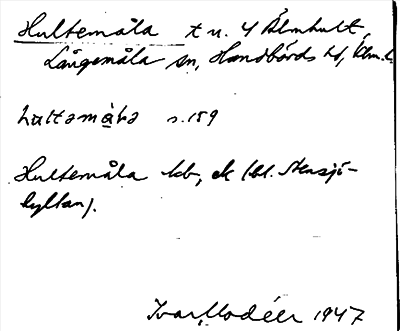 Hultemåla t u. 4 Älmhult,
Långemåla sn, Handbörds hd, Klm. l.
s. 159
Hultemåla kb, ek (bl. Stensjö-
hyltan).
Ivar Modéer 1947